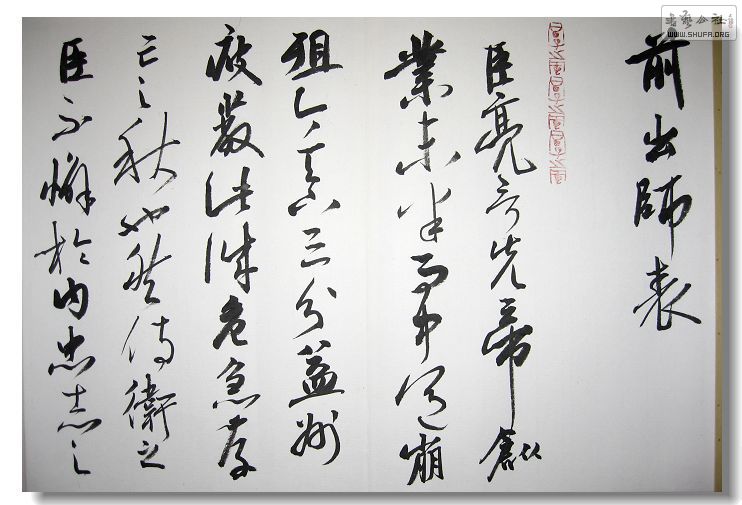 前出師表
臣亮言先帝創
業未半而中道崩
殂今天下三分益州
疲敝此誠危急存
亡之秋也然侍衛之
臣不懈於內忠志之
書藝公社
WWW.SHUFA.ORG